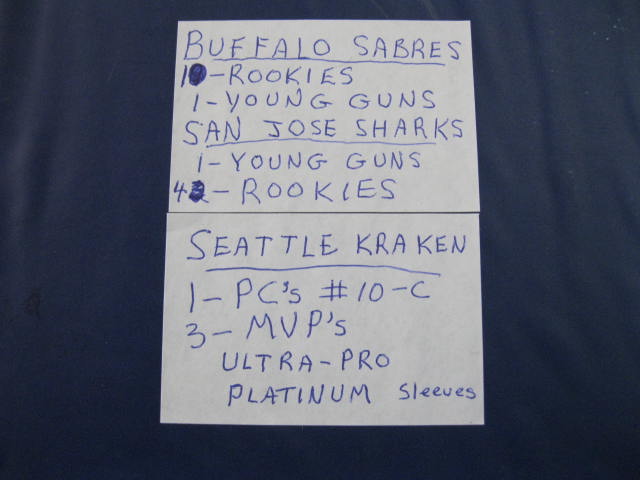 BUFFALO SABRES
10-ROOKIES
1-YOUNG GUNS
SAN JOSE SHARKS
1-YOUNG GUNS
4-ROOKIES
SEATTLE KRAKEN
1-PC's #10-C
3-MVP's
ULTRA-PRO
PLATINUM Sleeves